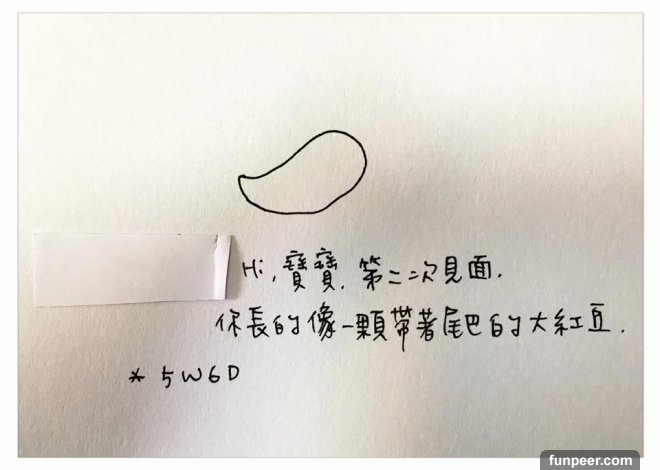 Hi, 寶寶, 第二次見面.
你長的像一顆帶著尾巴的大紅豆.
* 5W6D
funpeer.com